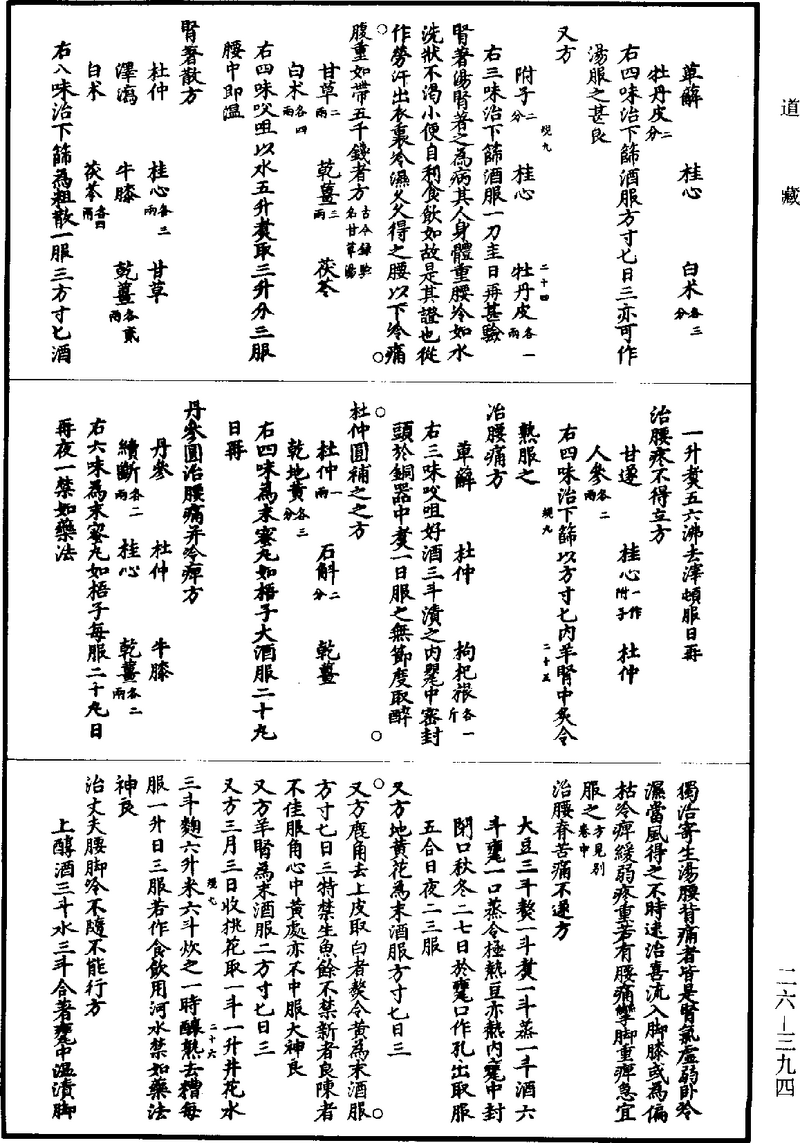 道藏
萆薢　桂心　白朮各三分
牡丹皮二分
右四味治下篩酒服方寸匕日三亦可作
湯服之甚良
又方
附子二分　桂心　牡丹皮各一兩
規九　二十四
右三味治下篩酒服一刀圭日再甚驗
腎著湯腎著之為病其人身體重腰冷如水
洗狀不渴小便自利食飲如故是其證也從
作勞汗出衣裏冷濕久久得之腰以下冷痛
腹重如帶五千錢者方古今錄驗名甘草湯
甘草二兩　乾薑三兩　茯苓
白朮各四兩
右四味㕮咀以水五升煑取三升分三服
腰中即温
腎著散方
杜仲　桂心各三兩　甘草
澤瀉　牛膝　乾薑各貳兩
白朮　茯苓各四兩
右八味治下篩為粗散一服三方寸匕酒
一升煑五六沸去滓頓服日再
治腰疼不得立方
甘遂　桂心一作附子　杜仲
人參各二兩
右四味治下篩以方寸匕內羊腎中炙令
規九　二十五
熟服之
治腰痛方
萆薢　杜仲　枸杞根各一斤
右三味㕮咀好酒三斗漬之內甖中密封
頭於銅器中煑一日服之無節度取醉
杜仲圓補之之方
杜仲一兩　石斛二分　乾薑
乾地黃各三分
右四味為末蜜丸如梧子大酒服二十丸
日再
丹參圓治腰痛并冷痹方
丹參　杜仲　牛膝
續斷各二兩　桂心　乾薑各二兩
右六味為末蜜丸如梧子每服二十丸日
再夜一禁如藥法
獨活寄生湯腰背痛者皆是腎氣虛弱臥冷
濕當風得之不時速治喜流入脚膝或為偏
枯冷痹緩弱疼重若有腰痛攣脚重痹急宜
服之方見別卷中
治腰脊苦痛不遂方
大豆三斗熬一斗煑一斗蒸一斗酒六
斗甕一口蒸令極熱豆亦熱內甕中封
閉口秋冬二七日於甕口作孔出取服
五合日夜二三服
又方地黃花為末酒服方寸匕日三
又方鹿角去上皮取白者熬令黃為末酒服
方寸匕日三特禁生魚餘不禁新者良陳者
不佳服角心中黃處亦不中服大神良
又方羊腎為末酒服二方寸匕日三
又方三月三日收桃花取一斗一升井花水
規九　二十六
三斗麴六升米六斗炊之一時釀熟去糟每
服一升日三服若作食飲用河水禁如藥法
神良
治丈夫腰脚冷不隨不能行方
上醇酒三斗水三斗合著甕中温漬脚
二六—三九四